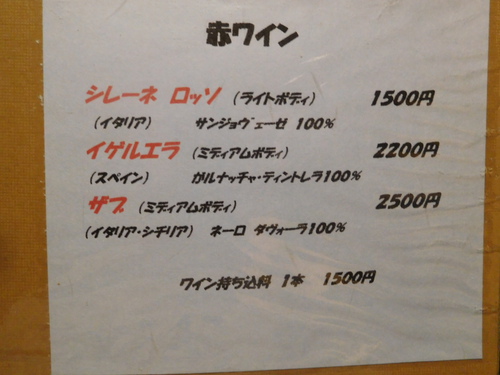 赤ワイン
シレーネ ロッソ (ライトボディ) 1500円
(イタリア) サンジョヴェーゼ 100%
イゲルエラ (ミディアムボディ) 2200円
(スペイン) ガルナッチャ・ティントレラ100%
ザブ (ミディアムボディ) 2500円
(イタリア・シチリア) ネーロ ダヴォーラ100%
ワイン持ち込料 1本 1500円